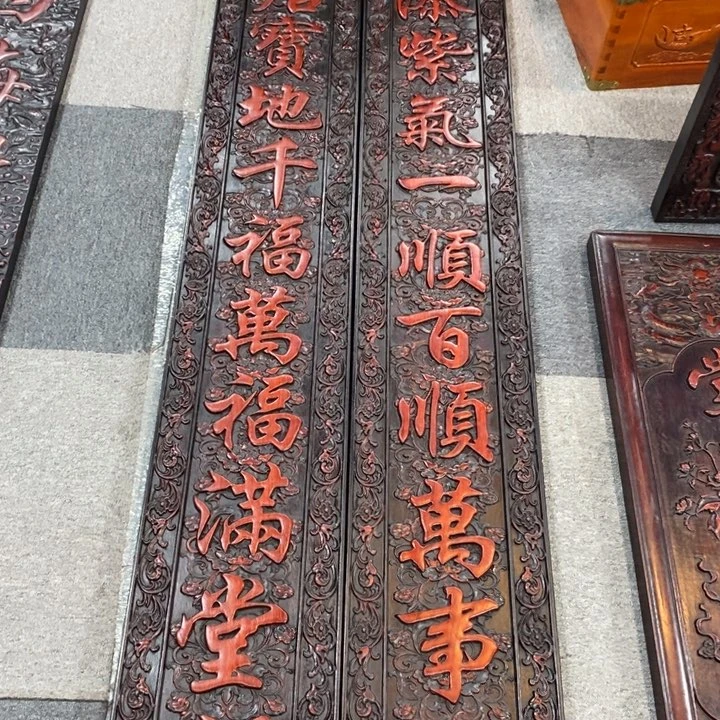 紫氣一順百順萬事
寶地千福萬福滿堂